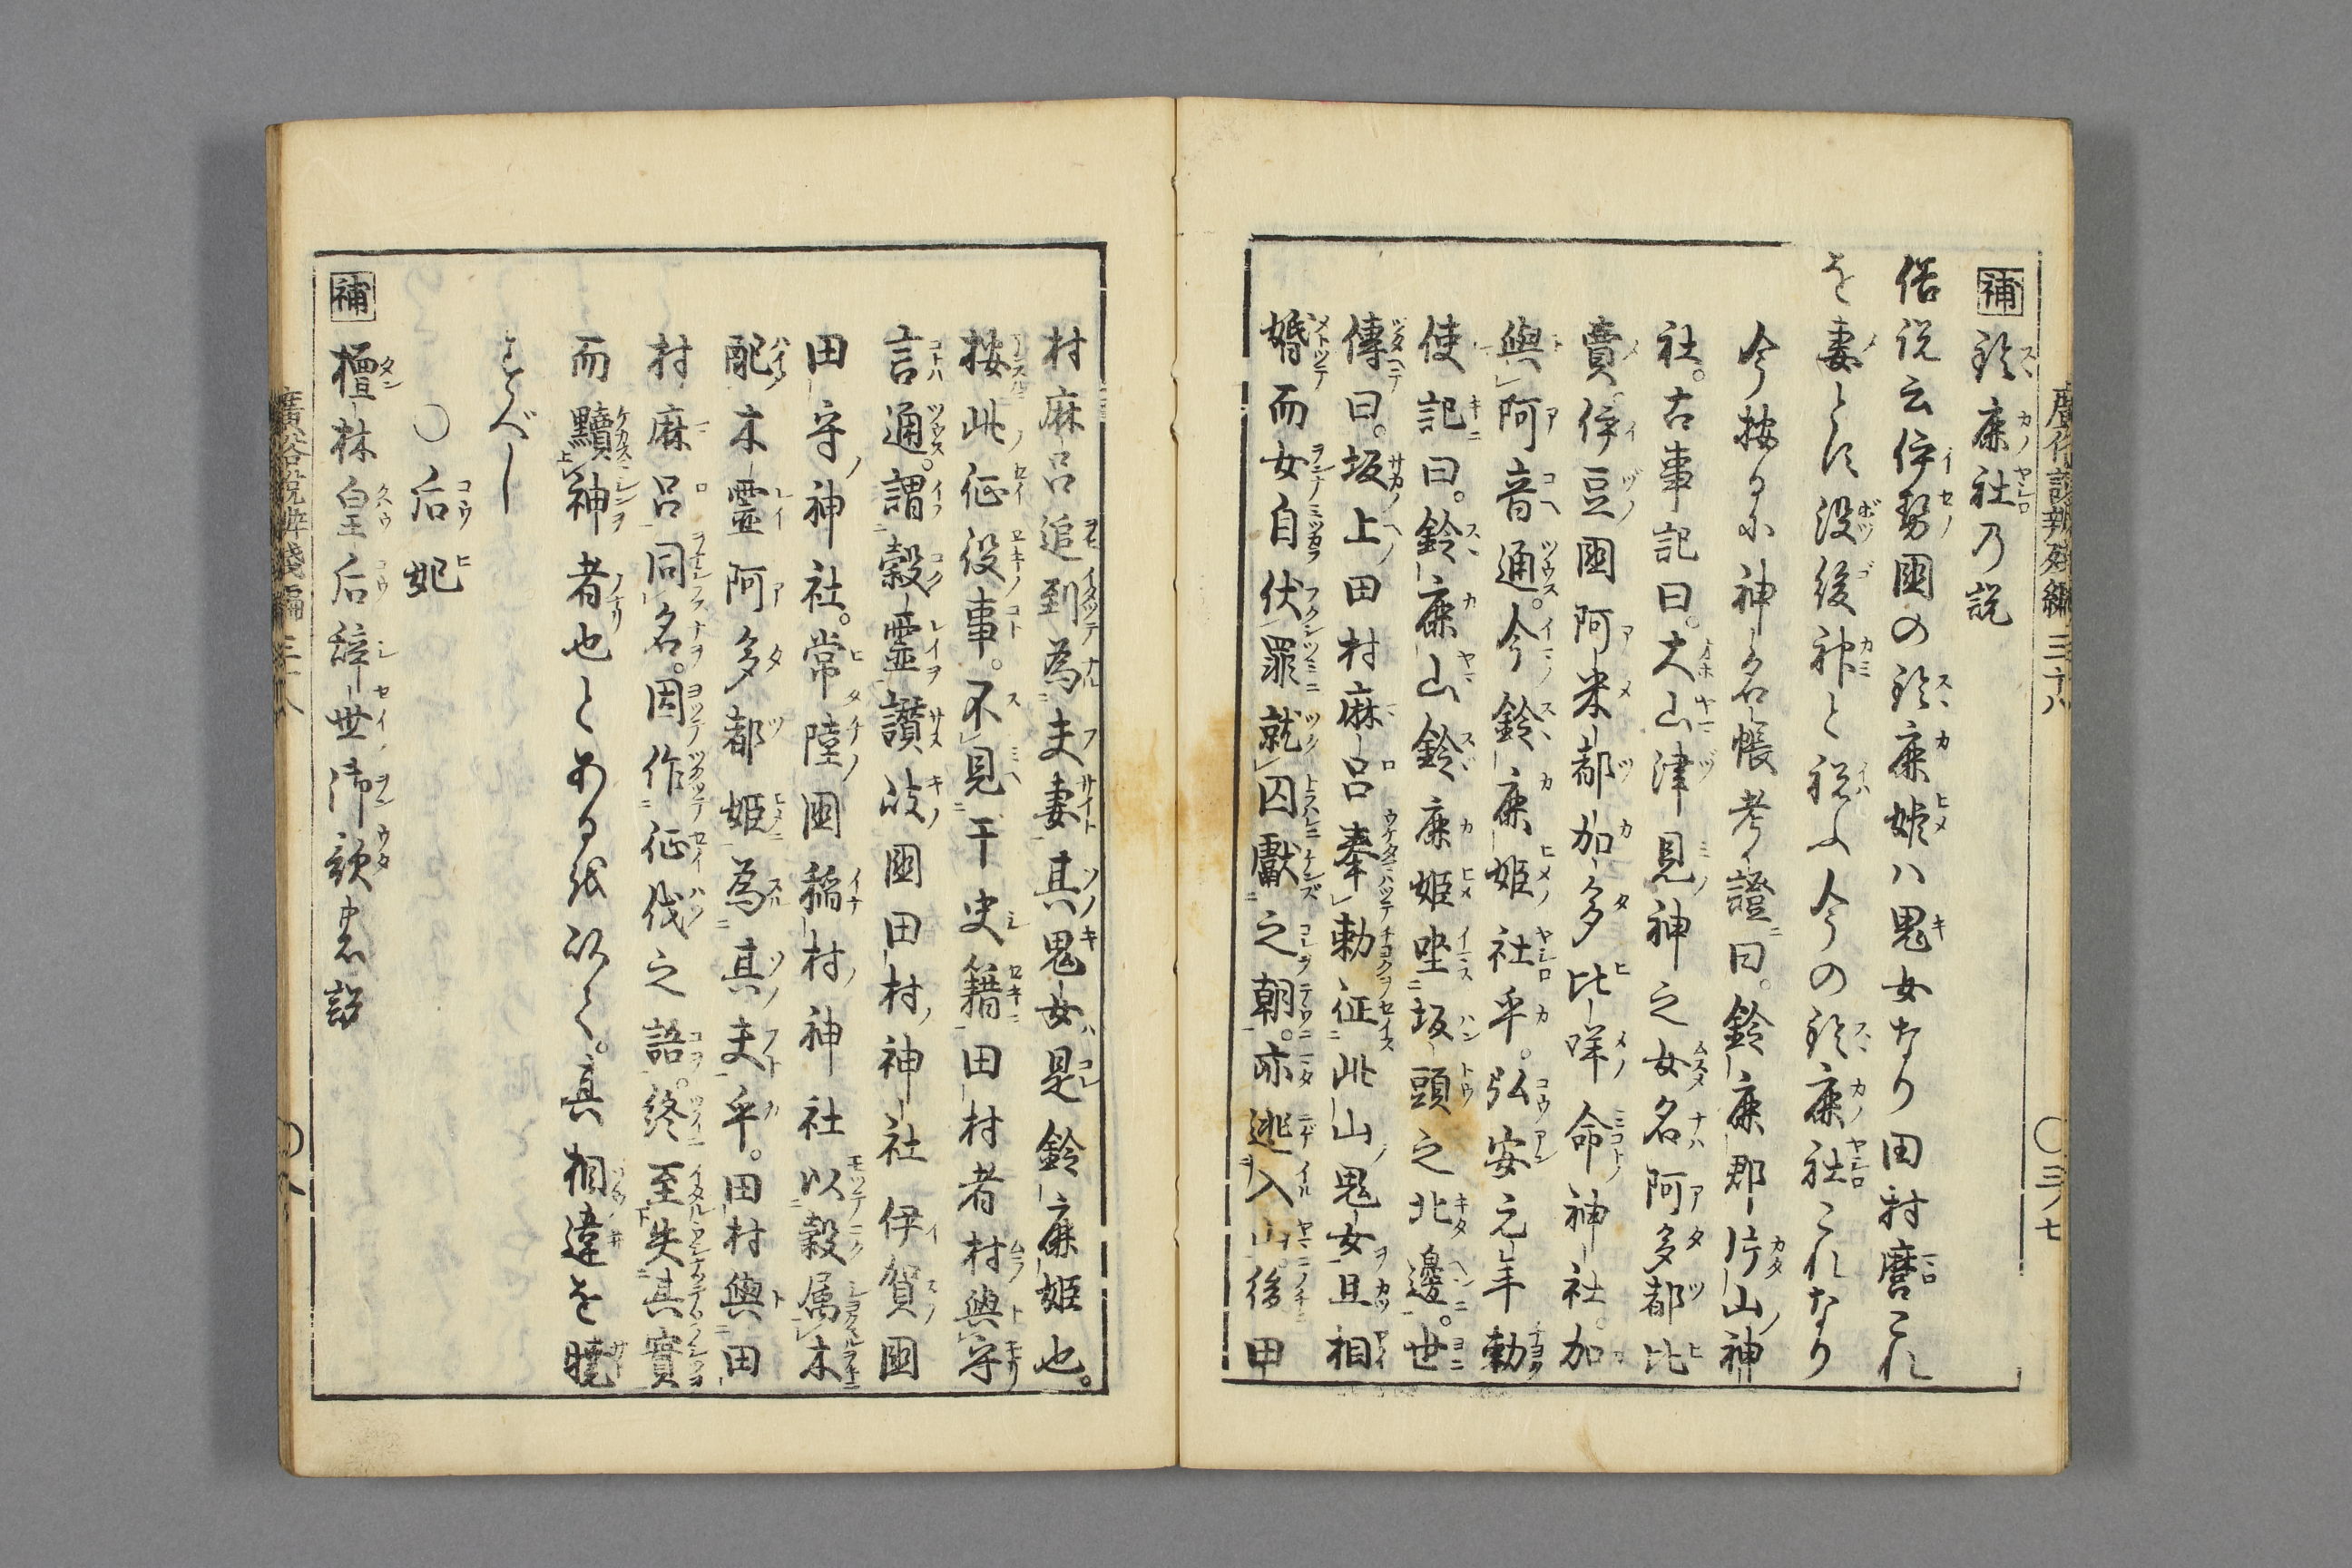 補 鈴鹿社乃説
俗説云伊勢國の鈴鹿姫ハ鬼女なり田村麿これ
を妻とす没後神と祝ふ今の鈴鹿社これなり
今按るに神名帳考證曰。鈴鹿郡片山神
社。古事記曰。大山津見神之女名阿多都比
賣。伊豆國阿米都加多比咩命神社。加
與阿音通。今鈴鹿姫社乎。弘安元年勅
使記曰。鈴鹿山鈴鹿姫坐坂頭之北邊。世
傳曰。坂上田村麻呂奉勅征此山鬼女且相
婚而女自伏罪就囚獻之朝。亦逃入山。後田
村麻呂追到為夫妻其鬼女是鈴鹿姫也。
按此征役事。不見于史籍田村者村與守
言通。謂穀靈讃岐國田村神社伊賀國
田守神社。常陸國稲村神社以穀属木
配木靈阿多都姫為其夫乎。田村與田
村麻呂同名。因作征伐之語。終至失其實
而黷神者也とある以て。真相違を曉
とるべし
〇后妃
補 檀林皇后辞世御歌の説
廣俗説辨残編 三十八
〇三ノ七
廣俗説辨殘編 三十八